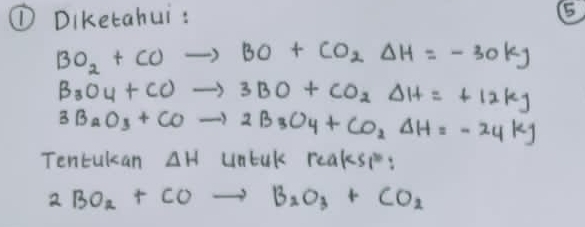 ① Diketahui : ⑤
BO₂ + CO → BO + CO₂ ΔH = - 30 kg
B₃O₄ + CO → 3 BO + CO₂ ΔH = + 12 kg
3 B₂O₃ + CO → 2 B₃O₄ + CO₂ ΔH = - 24 kg
Tentukan ΔH untuk reaksi :
2 BO₂ + CO → B₂O₃ + CO₂